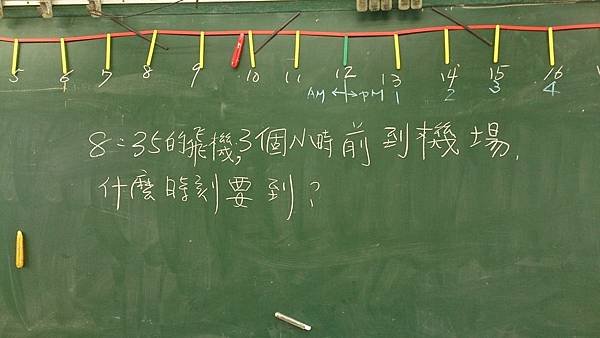 5 6 7 8 9 10 11 12 13 14 15 16
AM ←→ PM 1 2 3 4
8:35的飛機,3個小時前到機場,
什麼時刻要到?